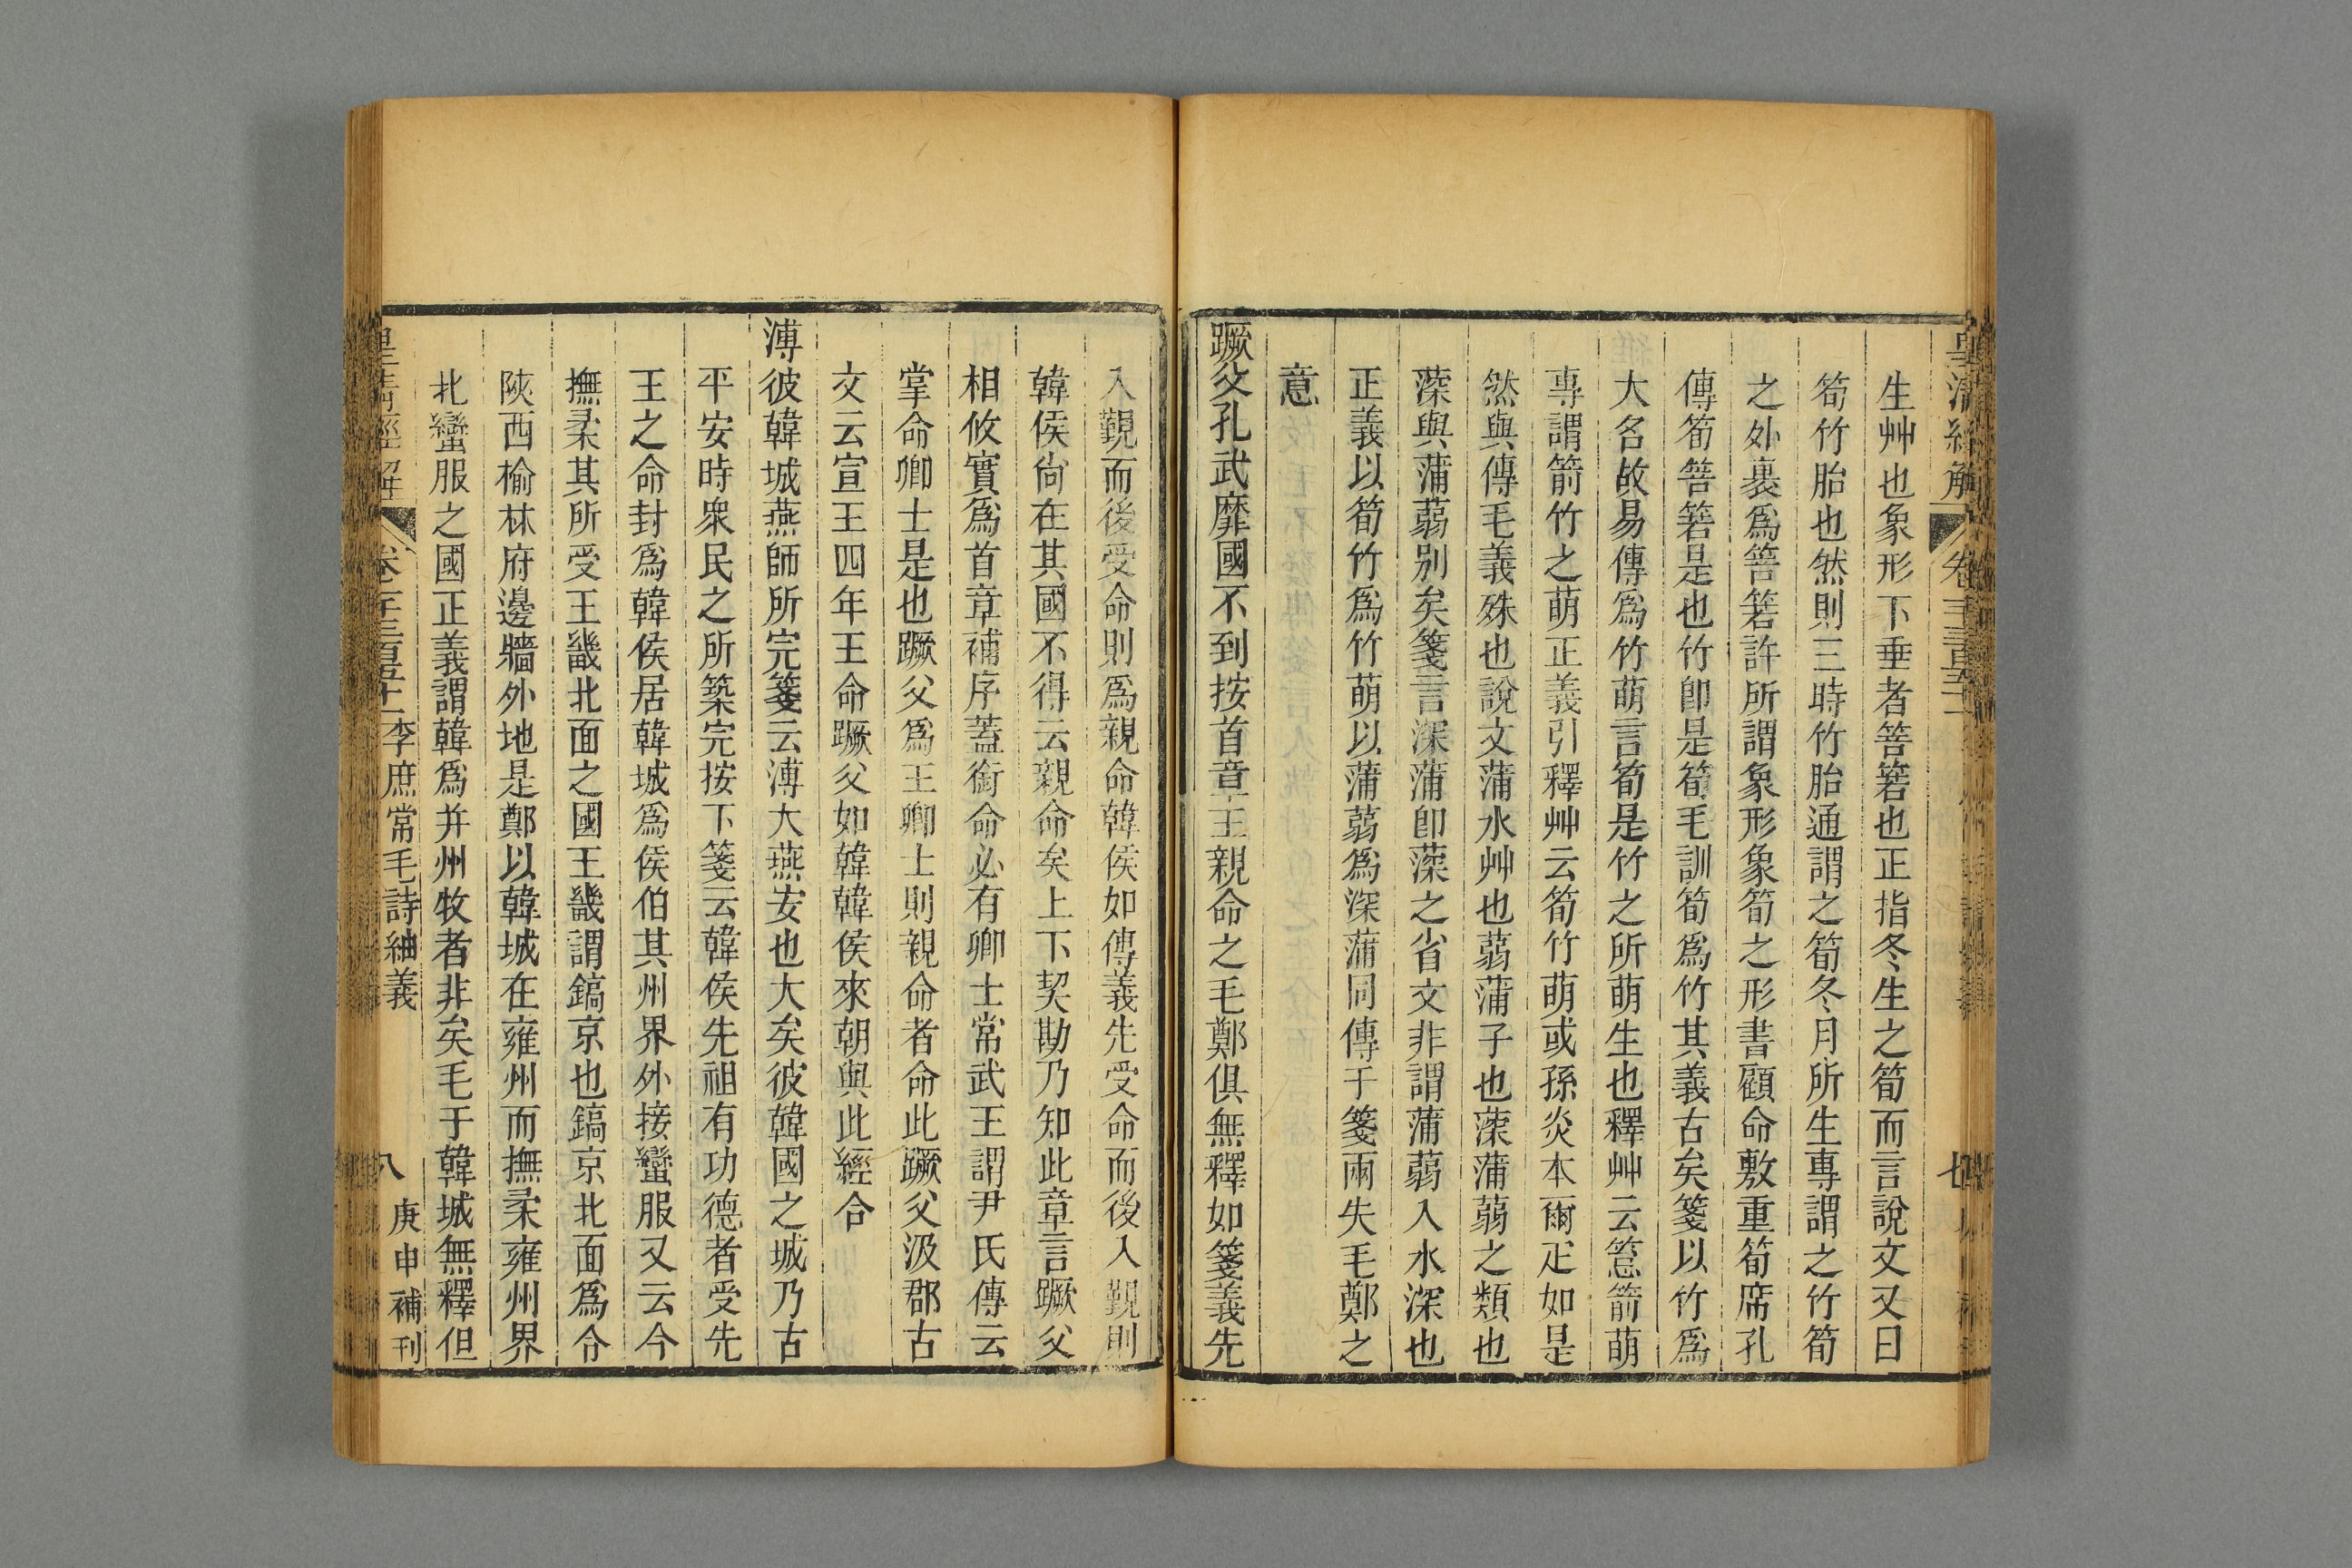 皇清經解 卷一千三百五十一 七
生艸也象形下垂者箁箬也正指冬生之筍而言說文又曰
筍竹胎也然則三時竹胎通謂之筍冬月所生專謂之竹筍
之外裹爲箁箬許所謂象形象筍之形書顧命敷重筍席孔
傳筍箁箬是也竹卽是筍毛訓筍爲竹其義古矣箋以竹爲
大名故易傳爲竹萌言筍是竹之所萌生也釋艸云篙箭萌
專謂箭竹之萌正義引釋艸云筍竹萌或孫炎本爾疋如是
然與傳毛義殊也說文蒲水艸也蒻蒲子也蒤蒲蒻之類也
蒤與蒲蒻別矣箋言深蒲卽蒤之省文非謂蒲蒻入水深也
正義以筍竹爲竹萌以蒲蒻爲深蒲同傳于箋兩失毛鄭之
意
蹶父孔武靡國不到按首章王親命之毛鄭俱無釋如箋義先
入覲而後受命則爲親命韓侯如傳義先受命而後入覲則
韓侯尙在其國不得云親命矣上下契勘乃知此章言蹶父
相攸實爲首章補序蓋銜命必有卿士常武王謂尹氏傳云
掌命卿士是也蹶父爲王卿士則親命者命此蹶父汲郡古
文云宣王四年王命蹶父如韓韓侯來朝與此經合
溥彼韓城燕師所完箋云溥大燕安也大矣彼韓國之城乃古
平安時衆民之所築完按下箋云韓侯先祖有功德者受先
王之命封爲韓侯居韓城爲侯伯其州界外接蠻服又云今
撫柔其所受王畿北面之國王畿謂鎬京也鎬京北面爲今
陝西榆林府邊牆外地是鄭以韓城在雍州而撫柔雍州界
北蠻服之國正義謂韓爲幷州牧者非矣毛于韓城無釋但
皇清經解 卷一千三百五十一 李庶常毛詩紬義 八 庚申補刊